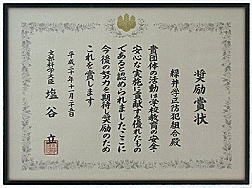 奨励賞状
緑井学区防犯組合殿
貴団体の活動は学校教育の安全
安心な実施に貢献する優れたもの
であると認められましたここに
今後の努力を期待し奨励のため
これを賞します
平成二十年十一月二十五日
文部科学大臣 塩谷立